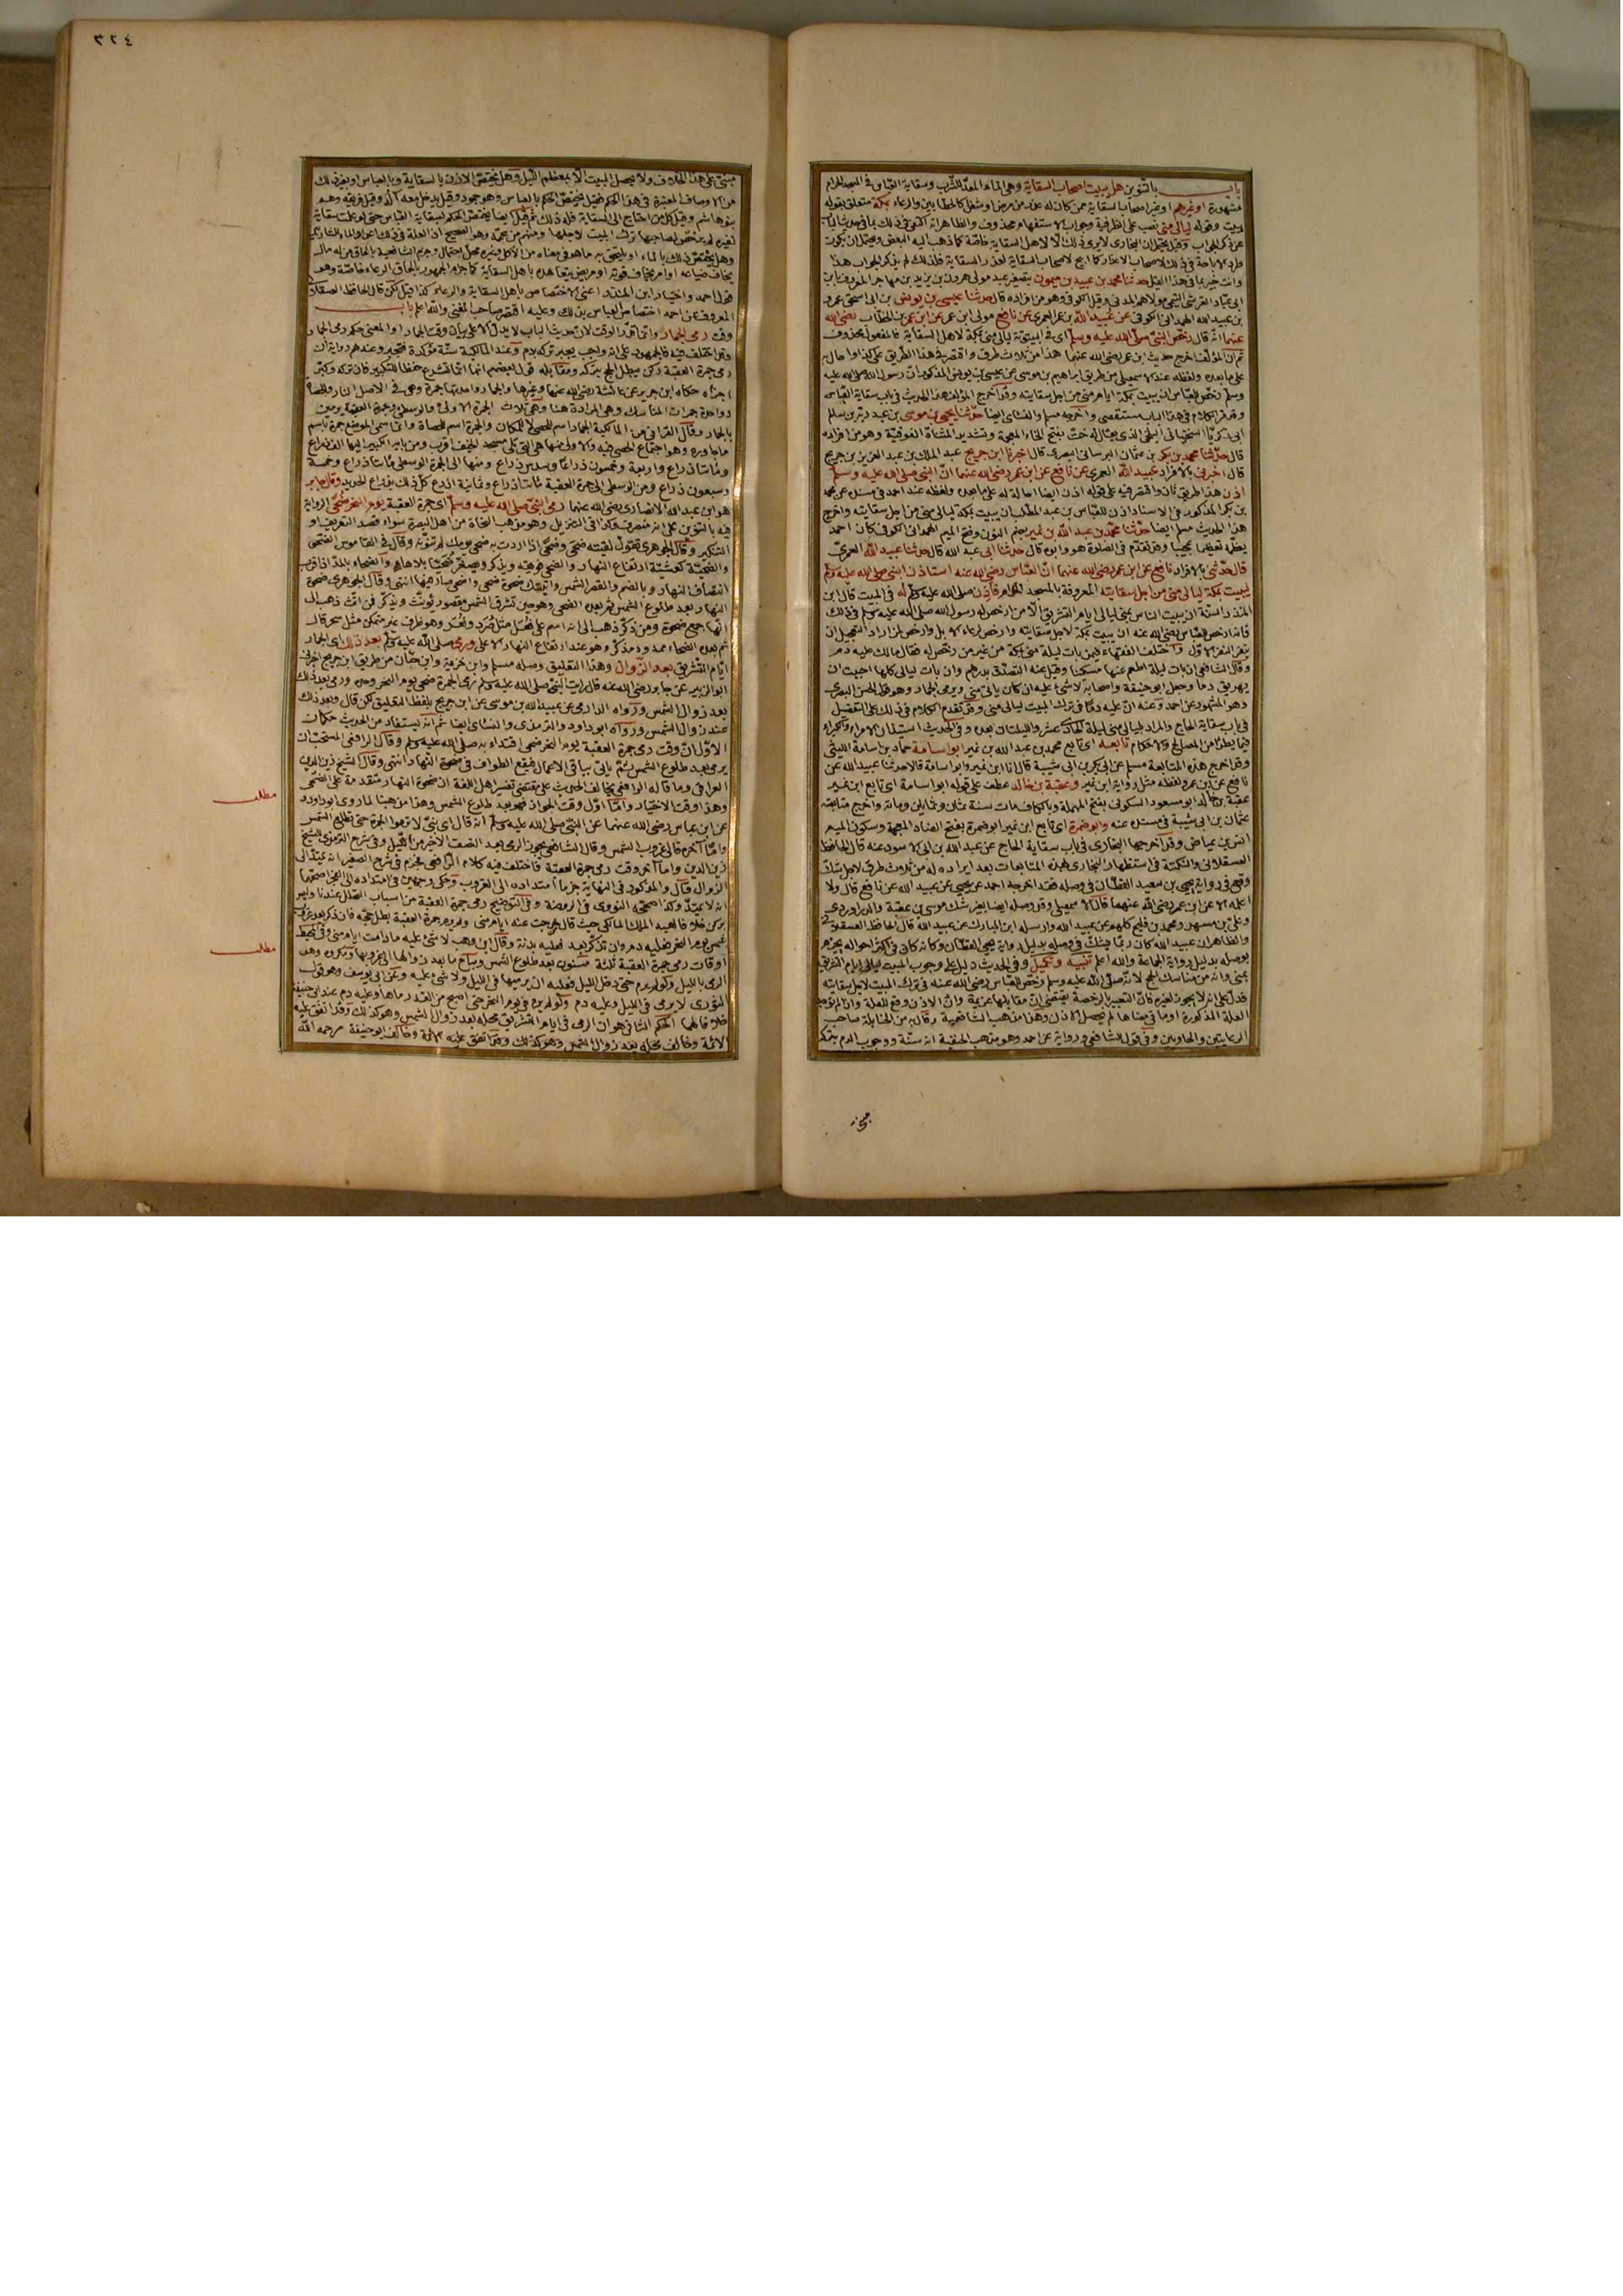 باب بالتنوين هل يبيت اصحاب السقاية وهى الماء المعدّ للشرب وسقاية العباس فى المسجد الحرام
مشهورة او غيرهم او غير اصحاب السقاية ممن كان له عذر من مرض او شغل كالحطابين والرعاء بمكة متعلق بقوله
يبيت وقوله ليالى منى نصب على الظرفية وجواب الاستفهام محذوف والظاهر انه اكتفى فى ذلك بما فى حديث الباب
عن ذكر الجواب وقيل يحتمل ان البخارى لا يرى ذلك الا لاهل السقاية خاصّة كما ذهب اليه البعض ويحتمل ان يكون
طرد الاباحة فى ذلك لاصحاب الاعذار كما ابيح لاصحاب السقاية لعذر السقاية فلذلك لم يذكر الجواب هذا
وانت خبير بما فى هذا القيل حدثنا محمد بن عبيد بن ميمون بتصغير عبد مولى هرون بن يزيد بن مهاجر المعروف بابن
ابى عباد القرشى التيمى مولاهم المدنى وقيل الكوفى وهو من افراده قال حدثنا عيسى بن يونس بن ابى اسحق عمرو
بن عبيد الله الهمدانى الكوفى عن عبيد الله بن عمر العمرى عن نافع مولى ابن عمر عن ابن عمر بن الخطاب رضى الله
عنهما انه قال رخّص النبىّ صلّى الله عليه وسلّم اى فى البيتوتة ليالى منى بمكة لاهل السقاية فالمفعول محذوف
ثم ان المؤلف اخرج حديث ابن عمر رضى الله عنهما هذا من ثلاث طرق واقتصر فى هذا الطريق على كذا واحال به
على ما بعده ولفظه عند الاسمعيلى من طريق ابراهيم بن موسى عن عيسى بن يونس المذكور ان رسول الله صلى الله عليه
وسلم رخّص للعباس ان يبيت بمكة ايام منى من اجل سقايته وقد اخرج المؤلف هذا الحديث فى باب سقاية العباس
وقد مر الكلام فى هذا الباب مستقصى واخرجه مسلم والنسائى ايضا حدّثنا يحيى بن موسى بن عبد ربّه بن سالم
ابى زكريّا السختيانى البلخى الذى يقال له ختّ بفتح الخاء المعجمة وتشديد المثناة الفوقيّة وهو من افراده
قال حدّثنا محمد بن بكر بن عثمان البرسانى البصرى قال اخبرنا ابن جريج عبد الملك بن عبد العزيز بن جريج
قال اخبرنى بالافراد عبيد الله العمرى عن نافع عن ابن عمر رضى الله عنهما انّ النبى صلى الله عليه وسلّم
اذن هذا طريق ثان واقتصر فيه على قوله اذن ايضا احالة له على ما بعده ولفظه عند احمد فى مسنده عن محمد
بن بكر المذكور فى الاسناد اذن للعباس بن عبد المطلب ان يبيت بمكة ليالى منى من اجل سقايته واخرج
هذا الحديث مسلم ايضا حدّثنا محمّد بن عبد الله بن نمير بضم النون وفتح الميم الهمدانى الكوفى كان احمد
يعظّمه تعظيما عجيبا وقد تقدّم فى الصلوة هو وابوه قال حدثنا ابى عبد الله قال حدثنا عبيد الله العمرىّ
قال حدّثنى بالافراد نافع عن ابن عمر رضى الله عنهما انّ العبّاس رضى الله عنه استاذن النبى صلى الله عليه وسلم
ليبيت بمكة ليالى منى من اجل سقايته المعروفة بالمسجد الحرام فاذن صلى الله عليه وسلم له فى المبيت قال ابن
المنذر السنة ان يبيت الناس بمنى ليالى ايام التشريق الا من ارخص له رسول الله صلى الله عليه وسلم فى ذلك
فانه ارخص للعباس رضى الله عنه ان يبيت بمكة لاجل سقايته وارخص لرعاء الابل وارخص لمن اراد التعجيل ان
ينفر النفر الاول واختلف الفقهاء فيمن بات ليلة منى بمكة من غير من رخّص له فقال مالك عليه دم
وقال الشافعى ان بات ليلة اطعم عنها مسكينا وقيل عنه التصدّق بدرهم وان بات ليالى كلها احببت ان
يهريق دما وجعل ابو حنيفة واصحابه لا شئ عليه ان كان ياتى منى ويرمى الجمار وهو قول الحسن البصرى
وهو المشهور عن احمد وعنه انّ عليه دمًا فى ترك المبيت ليالى منى وقد تقدم الكلام فى ذلك على التفصيل
فى باب سقاية الحاج والمراد بليالى منى ليلة الحادى عشر والليلتان بعده وفى الحديث استيذان الامراء والكبراء
فيما يطرأ من المصالح والاحكام تابعه اى تابع محمد بن عبد الله بن نمير ابو اسامة حماد بن اسامة الليثى
وقد اخرج هذه المتابعة مسلم عن ابى بكر بن ابى شيبة قال انا ابن نمير وابو اسامة قالا حدثنا عبيد الله عن
نافع عن ابن عمر ولفظه مثل رواية ابن نمير وعقبة بن خالد عطف على قوله ابو اسامة اى تابع ابن نمير
عقبة بن خالد ابو مسعود السكونى بفتح المهملة وبالكاف مات سنة ثمان وثمانين ومائة واخرج متابعته
عثمان بن ابى شيبة فى مسنده عنه وابو ضمرة اى تابع ابن نمير ابو ضمرة بفتح الضاد المعجمة وسكون الميم
انس بن عياض وقد اخرجها البخارى فى باب سقاية الحاج عن عبد الله بن ابى الاسود عنه قال الحافظ
العسقلانى والنكتة فى استظهار البخارى بهذه المتابعات بعد ايراده له من ثلاث طرق لاجل شكّ
وقع فى رواية يحيى بن سعيد القطان فى وصله فقد اخرجه احمد عن يحيى عن عبيد الله عن نافع قال ولا
اعلمه الا عن ابن عمر رضى الله عنهما قال الاسمعيلى وقد وصله ايضا بغير شك موسى بن عقبة والدراوردى
وعلىّ بن مسهر ومحمد بن فليح كلهم عن عبيد الله وارسله ابن المبارك عن عبيد الله قال الحافظ العسقلانى
والظاهر ان عبيد الله كان ربّما يشكّ فى وصله بدليل رواية يحيى القطان وكانه كان فى اكثر احواله يجزم
بوصله بدليل رواية الجماعة والله اعلم تنبيه وتكميل وفى الحديث دليل على وجوب المبيت ليالى ايام التشريق
بمنى وانه من مناسك الحج لانه صلّى الله عليه وسلم رخّص للعباس رضى الله عنه فى ترك المبيت لاجل سقايته
فدلّ على انه لا يجوز لغيره فانّ التعبير بالرخصة يقتضى انّ مقابلها عزيمة وانّ الاذن وقع للعلة واذا لم توجد
العلة المذكورة او ما فى معناها لم يحصل الاذن وهذا مذهب الشافعية وقال به من الحنابلة صاحب
الرعايتين والحاويين وفى قول الشافعى ورواية عن احمد وهو مذهب الحنفية انه سنّة ووجوب الدم بتركه
٣٢٤
مبنىّ على هذا الخلاف ولا يحصل المبيت الا بمعظم الليل وهل يختص الاذن بالسقاية وبالعباس او بغير ذلك
من الاوصاف المعتبرة فى هذا الحكم فقيل يختصّ الحكم بالعباس وهو جمود وقيل يدخل معه آله وقيل فريقه وهم
بنو هاشم وقيل كل من احتاج الى السقاية فله ذلك ثم قيل ايضا يختص الحكم بسقاية العباس حتى لو عملت سقاية
لغيره لم يرخّص لصاحبها ترك المبيت لاجلها ومنهم من عمّمه وهو الصحيح ان العلة فى ذلك اعداد الماء للشاربين
وهل يختصّ ذلك بالماء او يلتحق به ما هو فى معناه من الاكل وغيره محلّ احتمال وجزم الشافعية بالحاق من له مال
يخاف ضياعه او امر يخاف فوته او مريض يتعاهده باهل السقاية كما جزم الجمهور بالحاق الرعاء خاصّة وهو
قول احمد واختيار ابن المنذر اعنى الاختصاص باهل السقاية والرعاء كذا قيل لكن قال الحافظ العسقلانى
المعروف عن احمد اختصاص العباس بذلك وعليه اقتصر صاحب المغنى والله اعلم باب
وقت رمى الجمار وانما قدّر الوقت لان حديث الباب لا يدلّ الا على بيان وقت الجمار او المعنى حكم رمى الجمار
وقد اختلف فيه فالجمهور على انه واجب يجبر تركه بدم وعند المالكية سنّة مؤكدة فتجبر وعندهم رواية ان
رمى جمرة العقبة ركن يبطل الحج بتركه ومقابله قول بعضهم انما انما تشرع حفظا للتكبير فان تركه وكبّر
اجزاه حكاه ابن جرير عن عائشة رضى الله عنها وغيرها والجمار واحدتها جمرة وهى فى الاصل النار والحصاة
وواحدة جمرات المناسك وهى المرادة هنا وهى ثلاث الجمرة الاولى والوسطى وجمرة العقبة يرمين
بالجمار وقال القرافى من المالكية الجمار اسم للحصى لا للمكان والجمرة اسم للحصاة وانما سمى الموضع جمرة باسم
ما جاوره وهو اجتماع الحصى فيه والاولى منها هى التى تلى مسجد الخيف اقرب ومن بابه الكبير اليها الف ذراع
ومائتا ذراع واربعة وخمسون ذراعًا وسدس ذراع ومنها الى الجمرة الوسطى مائتا ذراع وخمسة
وسبعون ذراع ومن الوسطى الى جمرة العقبة مائتا ذراع وثمانية اذرع كل ذلك بذراع الحديد وقال جابر
هو ابن عبد الله الانصارى رضى الله عنهما رمى النبىّ صلى الله عليه وسلّم اى جمرة العقبة يوم النحر ضحًى الرواية
فيه بالتنوين على انه منصرف وكذا فى التنزيل وهو مذهب النحاة من اهل البصرة سواء قصد التعريف او
التنكير وقال الجوهرى تقول لقيته ضحًى وضحى اذا اردت به ضحى يومك لم تنوّنه وقال فى القاموس الضحى
والضحيّة كعشيّة ارتفاع النهار والضحى فويقه ويذكّر ويصغّر ضُحَيّا بلا هاء والضحاء بالمدّ اذا قرب
انتصاف النهار وبالضم والقصر الشمس واتيتك ضحوة ضحى واضحى صار فيها انتهى وقال الجوهرى ضحوة
النهار بعد طلوع الشمس ثم بعده الضحى وهو حين تشرق الشمس مقصور تؤنّث وتذكّر فمن انّث ذهب الى
انها جمع ضحوة ومن ذكّر ذهب الى انه اسم على فُعَل مثل صُرَد ونُغَر وهو ظرف غير متمكن مثل سحر قال
ثم بعده الضحاء ممدود مذكّر وهو عند ارتفاع النهار الاعلى ورمى صلى الله عليه وسلم بعد ذلك اى الجمار
ايّام التشريق بعد الزّوال وهذا التعليق وصله مسلم وابن خزيمة وابن حبّان من طريق ابن جريج اخبرنى
ابو الزبير عن جابر رضى الله عنه قال رايت النبىّ صلى الله عليه وسلم رمى الجمرة ضحى يوم النحر وحده ورمى بعد ذلك
بعد زوال الشمس ورواه الدارمى عن عبيد الله بن موسى عن ابن جريج بلفظ التعليق لكن قال وبعد ذلك
عند زوال الشمس ورواه ابو داود والترمذى والنسائى ايضا ثم انه يستفاد من الحديث حكمان
الاوّل انّ وقت رمى جمرة العقبة يوم النحر ضحى اقتداء به صلى الله عليه وسلم وقال الرافعى المستحبّ ان
يرمى بعد طلوع الشمس ثمّ ياتى بباقى الاعمال فيقع الطواف فى ضحوة النهار انتهى وقال الشيخ زين الدين
العراقى وما قاله الرافعى مخالف للحديث على مقتضى تفسير اهل اللغة ان ضحوة النهار متقدمة على الضحى
وهذا وقت الاختيار وامّا اوّل وقت الجواز فهو بعد طلوع الشمس وهذا مذهبنا لما روى ابو داود
عن ابن عباس رضى الله عنهما عن النبىّ صلى الله عليه وسلم انه قال اى بنىّ لا ترموا الجمرة حتى تطلع الشمس
وامّا آخره فالى غروب الشمس وقال الشافعى يجوز الرمى بعد النصف الاخير من الليل وفى شرح الترمذى للشيخ
زين الدين واما آخر وقت رمى جمرة العقبة فاختلف فيه كلام الرافعى فجزم فى شرح الصغير انه يمتدّ الى
الزوال قال والمذكور فى النهاية جزما امتداده الى الغروب وحكى وجهين فى امتداده الى الفجر اصحّهما
انه لا يمتدّ وكذا صحّحه النووى فى الروضة وفى التوضيح رمى جمرة العقبة من اسباب التحلل عندنا وليس
بركن خلافا لعبد الملك المالكى حيث قال من خرجت عنه ايام منى ولم يرم جمرة العقبة بطل حجّه فان ذكر بعد غروب
شمس يوم النحر فعليه دم وان تذكّر بعد فعليه بدنة وقال ابن وهب لا شئ عليه ما دامت ايام منى وفى المحيط
اوقات رمى جمرة العقبة ثلثة مسنون بعد طلوع الشمس ومباح ما بعد زوالها الى غروبها ومكروه وهو
الرمى بالليل ولو لم يرم حتى دخل الليل فعليه ان يرميها فى الليل ولا شئ عليه وعن ابى يوسف وهو قول
الثورى لا يرمى فى الليل وعليه دم ولو لم يرم فى يوم النحر حتى اصبح من الغد رماها وعليه دم عند ابى حنيفة
خلافا لهما الحكم الثانى هو ان الرمى فى ايام التشريق محله بعد زوال الشمس وهو كذلك وقد اتفق عليه
الائمة وخالف محله بعد زوال الشمس وهو كذلك وقد اتفق عليه الائمة وخالف ابو حنيفة رحمه الله
مطلب
مطلب